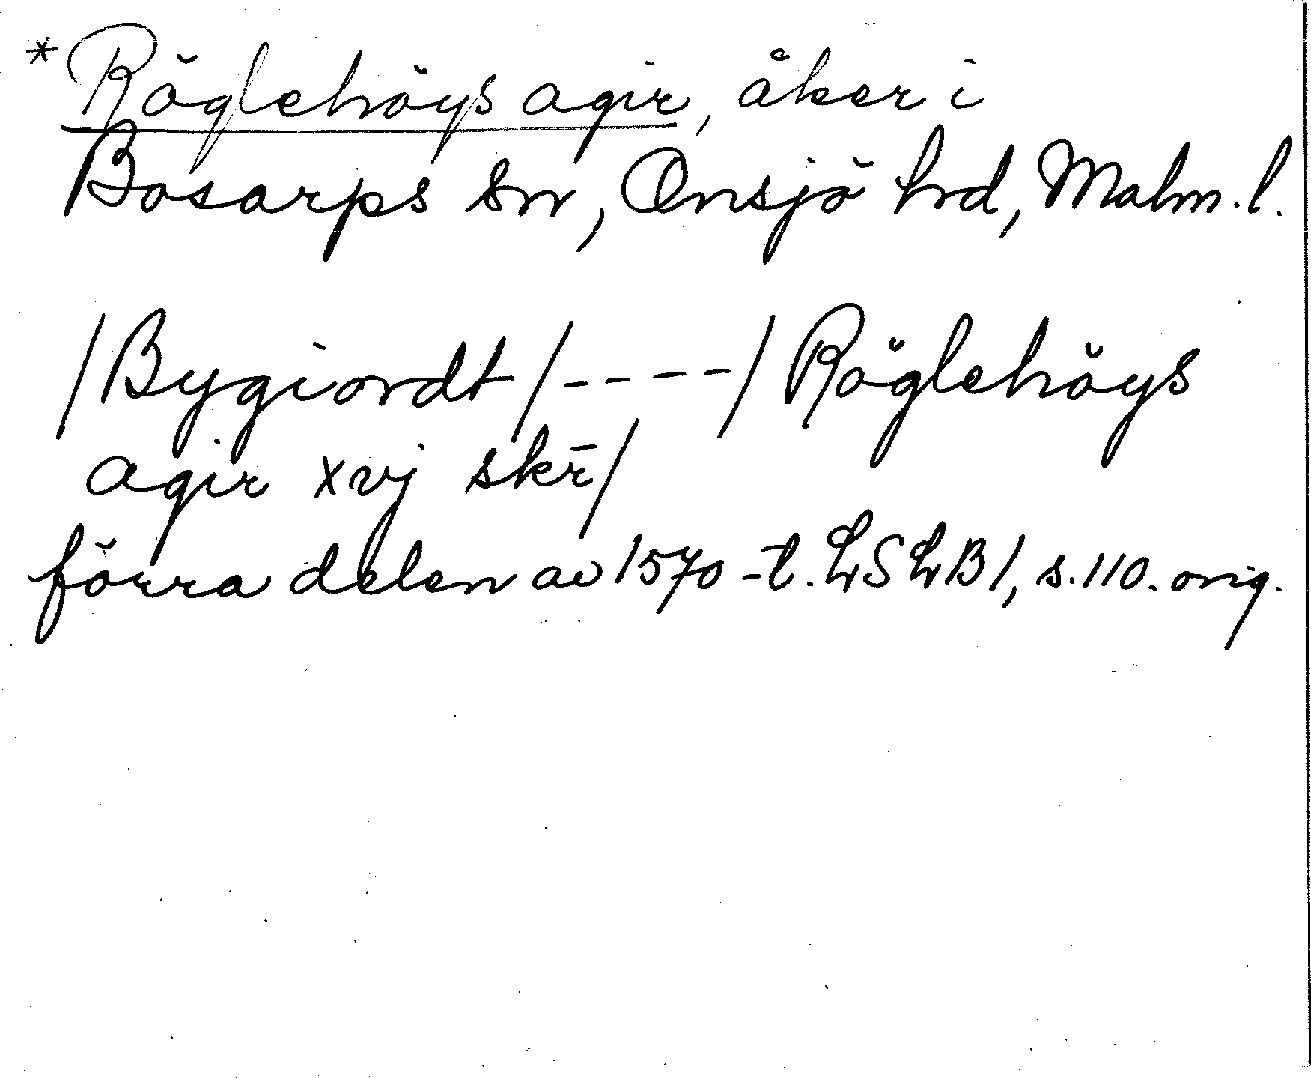 * Röglehöys agir, åker i
Bosarps sn, Onsjö hrd, Malm. l.
/Bygiordt/----/Röglehöys
agir xvj skr̄/
förra delen av 1570-t. LSLB1, s.110. orig.